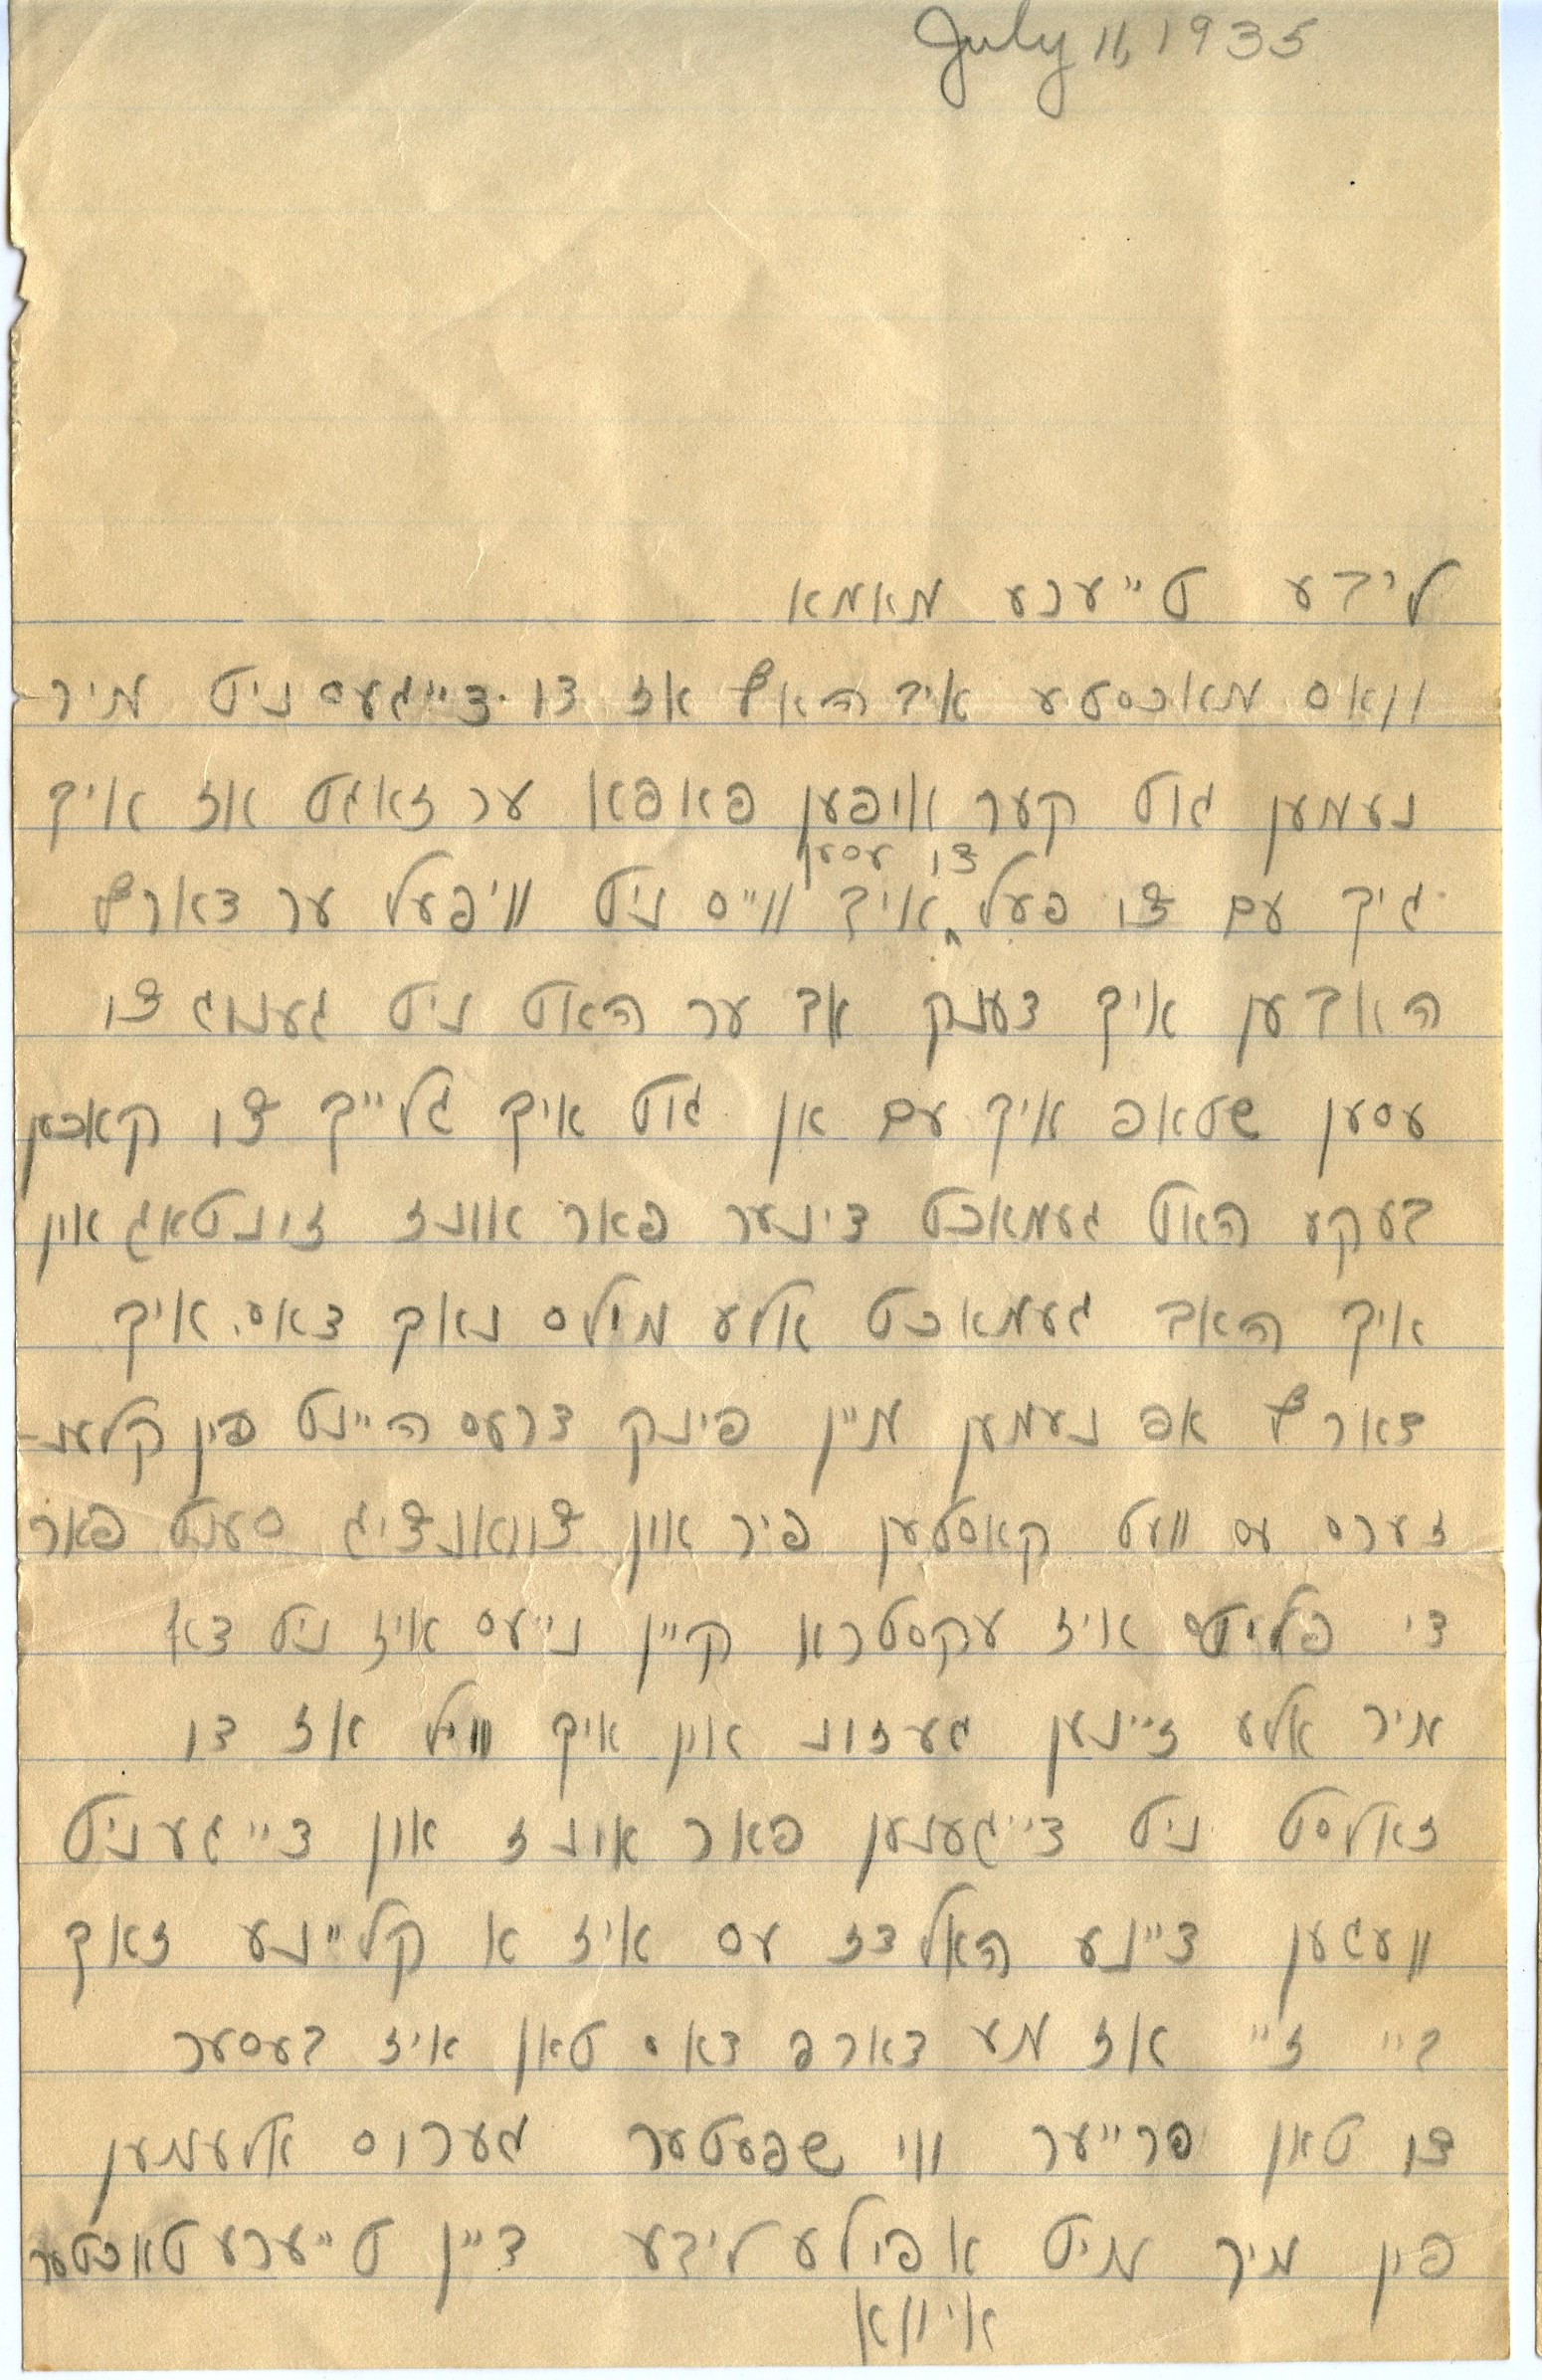 July 11, 1935
ליבע טייערע מאמא
וואס מאכסטע איך האף אז דו דייגעס ניט מיר
נעמען גוט קער אויפען פאפא ער זאגט אז איך
גיך עם צו פעל צו עסען איך ווייס ניט וויפעל ער דארף
האבען איך דענק אב ער האט ניט גענוג צו
עסען שטאפ איך עם אן גוט איך גלייך צו קאכען
בעקע האט געמאכט דינער פאר אוונז זונטאג און
איך האב געמאכט אלע מילס נאך דאס. איך
דארף אפ נעמען מיין פינק דרעס היינט פון קלענ-
זערס עס וועט קאסטען פיר און צוואנציג סענט פאר
די פליטס איז עקסטרא קיין נייעס איז ניט דא
מיר אלע זיינען געזונ און איך וויל אז דו
זאלסט ניט דייגענען פאר אונז און דייגע ניט
וועגען דיינע האלדז עס איז א קליינע זאך
ביי זיי אז מע דארפ דאס טאן איז בעסער
צו טאן פרייער ווי שפעטער גערוס אלעמען
פון מיר מיט א פולע ליבע דיין טייערע טאכטער
איווא